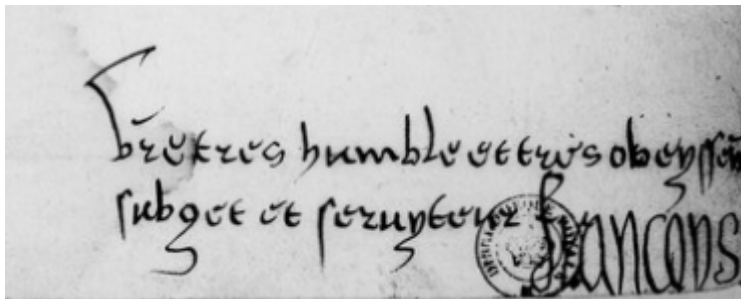 vr̃e tres humble et tres obeyssen
subget et seruyteur francoys